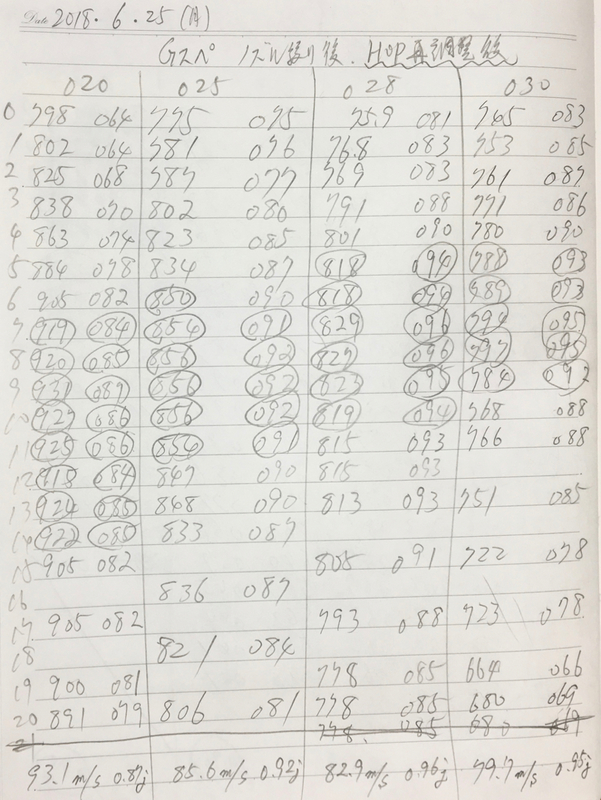 Date 2018. 6. 25 (月)
Gスペ ノズル 後. HOP再調整後
020 025 028 030
0 798 064 775 075 75.9 081 765 083
1 802 064 781 076 76.8 083 753 085
2 825 068 787 077 769 083 761 087
3 838 070 802 080 791 088 771 086
4 863 074 823 085 801 090 780 090
5 884 078 834 087 818 094 788 093
6 905 082 850 090 818 094 789 093
7 919 084 854 091 829 096 794 095
8 920 085 856 092 829 096 797 095
9 931 087 856 092 823 095 784 092
10 927 086 856 092 819 094 768 088
11 925 086 854 091 815 093 766 088
12 918 084 847 090 815 093
13 924 085 848 090 813 093 751 085
14 922 085 833 087
15 905 082 805 091 722 078
16 836 087
17 905 082 793 088 723 078
18 821 084
19 900 081 778 085 664 066
20 891 079 806 081 778 085 680 069
21 778 085 680 069
93.1m/s 0.87j 85.6m/s 0.92j 82.9m/s 0.96j 79.7m/s 0.95j